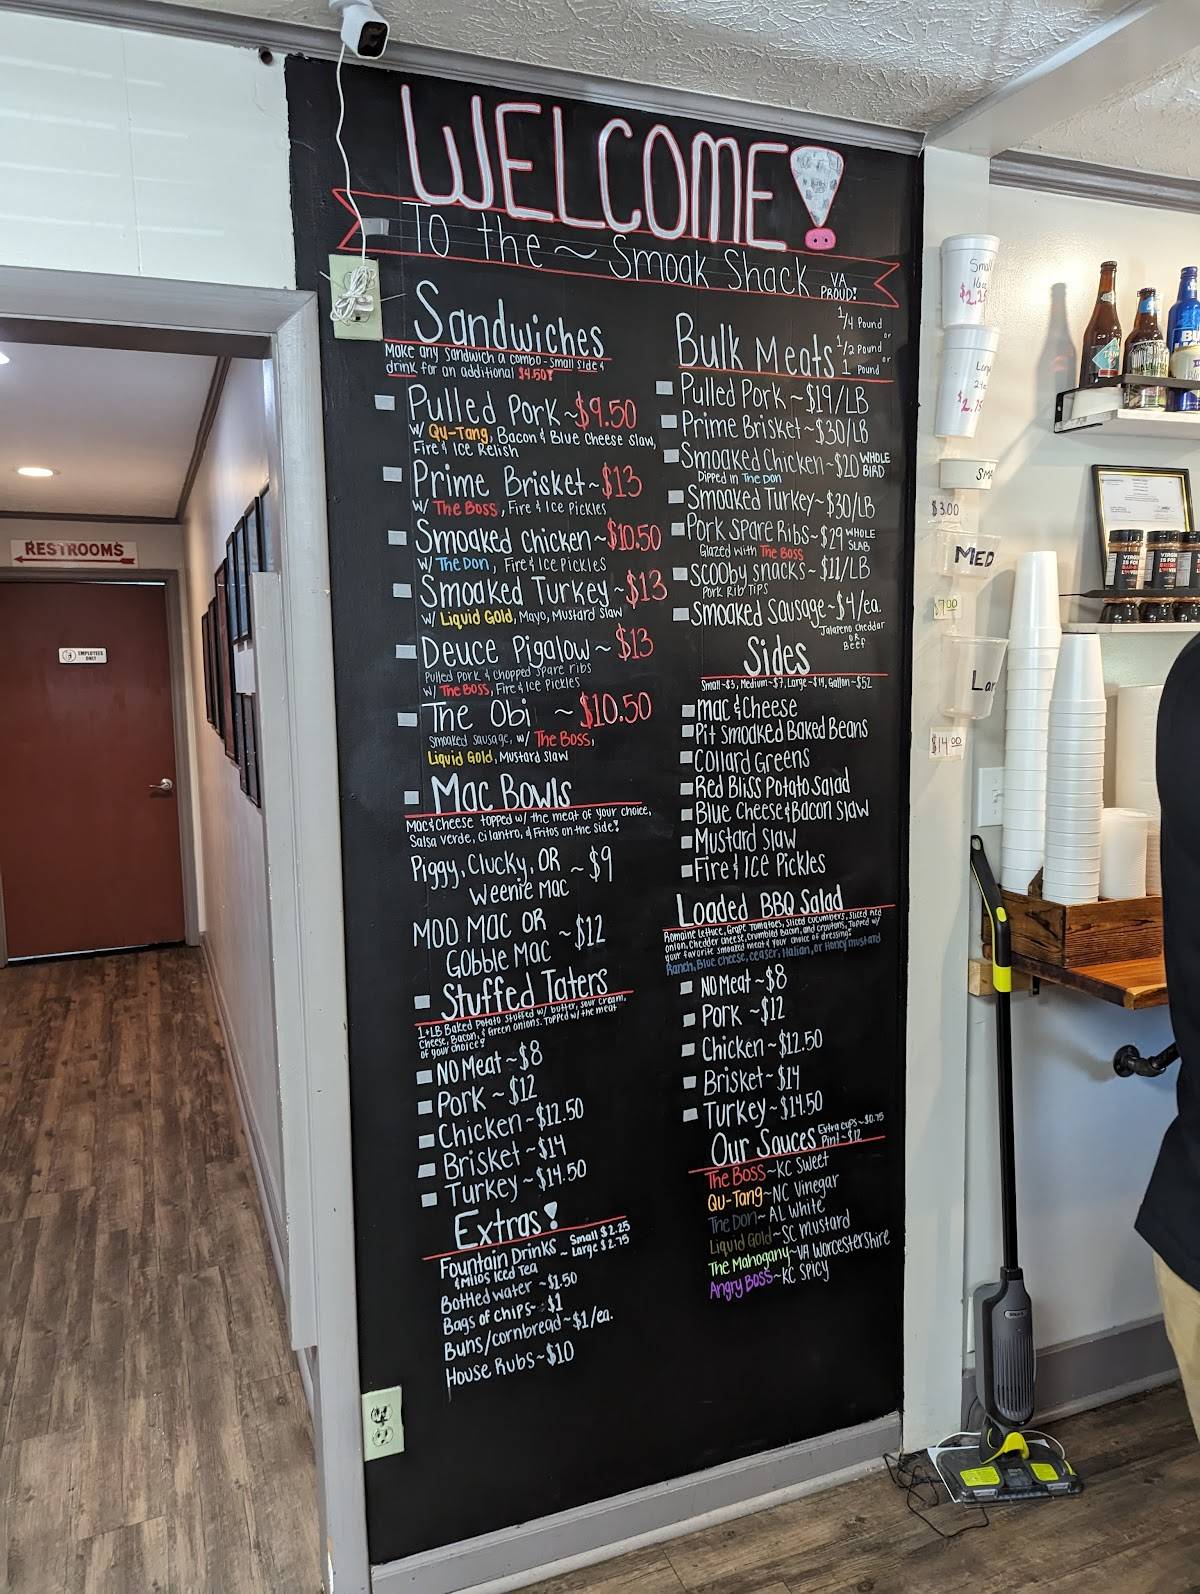 WELCOME!
To the ~ Smoak Shack
VA PROUD!
Sandwiches
Make any sandwich a combo - small side &
drink for an additional $4.50!
Pulled Pork ~ $9.50
w/ Qu-Tang, Bacon & Blue Cheese Slaw,
Fire & Ice Relish
Prime Brisket ~ $13
w/ The Boss, Fire & Ice Pickles
Smoaked Chicken ~ $10.50
w/ The Don, Fire & Ice Pickles
Smoaked Turkey ~ $13
w/ Liquid Gold, Mayo, Mustard Slaw
Deuce Pigalow ~ $13
Pulled Pork & Chopped Spare ribs
w/ The Boss, Fire & Ice Pickles
The Obi ~ $10.50
Smoaked sausage, w/ The Boss,
Liquid Gold, Mustard Slaw
Mac Bowls
Mac & Cheese topped w/ the meat of your choice,
Salsa verde, cilantro, & Fritos on the side!
Piggy, Clucky, OR
Weenie Mac ~ $9
MOO MAC OR
Gobble Mac ~ $12
Stuffed Taters
1+LB Baked Potato stuffed w/ butter, sour cream,
Cheese, Bacon, & Green onions. Topped w/ the meat
of your choice!
No Meat ~ $8
Pork ~ $12
Chicken ~ $12.50
Brisket ~ $14
Turkey ~ $14.50
Extras!
Fountain Drinks ~ Small $2.25
~ Large $2.75
& Milos Iced Tea
Bottled water ~ $1.50
Bags of chips ~ $1
Buns/cornbread ~ $1/ea.
House Rubs ~ $10
Bulk Meats
1/4 Pound
or
1/2 Pound
or
1 Pound
Pulled Pork ~ $19/LB
Prime Brisket ~ $30/LB
Smoaked Chicken ~ $20 WHOLE BIRD
Dipped in The Don
Smoaked Turkey ~ $30/LB
Pork Spare Ribs ~ $29 WHOLE SLAB
Glazed with The Boss
Scooby snacks ~ $11/LB
Pork Rib Tips
Smoaked Sausage ~ $4/ea.
Jalapeno cheddar
OR
Beef
Sides
Small ~ $3, Medium ~ $7, Large ~ $14, Gallon ~ $52
Mac & Cheese
Pit Smoaked Baked Beans
Collard Greens
Red Bliss Potato Salad
Blue Cheese & Bacon Slaw
Mustard Slaw
Fire & ICE Pickles
Loaded BBQ Salad
Romaine Lettuce, Grape Tomatoes, Sliced Cucumbers, Sliced Red
onion, Chedder cheese, Crumbled Bacon, and croutons, Topped w/
your favorite smoaked meat & your choice of dressing:
Ranch, Blue Cheese, Ceaser, Italian, or Honey mustard
No Meat ~ $8
Pork ~ $12
Chicken ~ $12.50
Brisket ~ $14
Turkey ~ $14.50
Our Sauces
Extra cups ~ $0.75
Pint ~ $12
The Boss ~ KC Sweet
Qu-Tang ~ NC Vinegar
The Don ~ AL White
Liquid Gold ~ SC Mustard
The Mahogany ~ VA Worcestershire
Angry Boss ~ KC Spicy
RESTROOMS
EMPLOYEES ONLY
Small
16oz
$2.25
$2.75
$3.00
MED
$7.00
$14.00